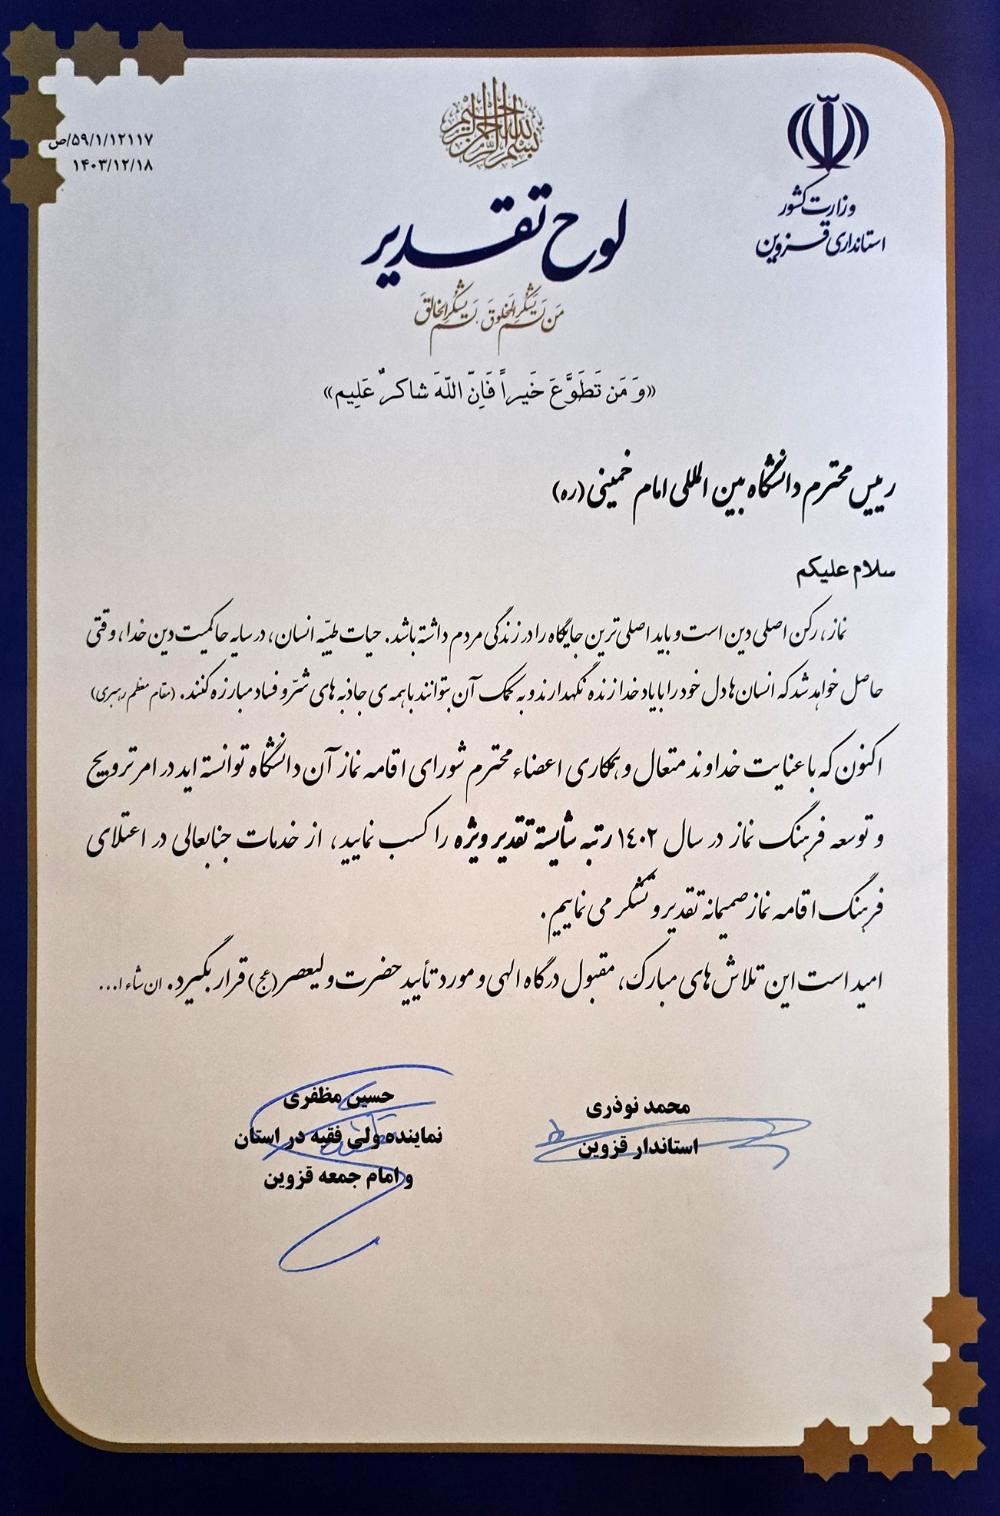 بسم الله الرحمن الرحیم
وزارت کشور
استانداری قزوین
۵۹/۱/۱۲۱۱۷/ص
۱۴۰۳/۱۲/۱۸
لوح تقدیر
مَن لَم یَشکُرِ المَخلوقَ لَم یَشکُرِ الخالِقَ
«وَ مَن تَطَوَّعَ خَیراً فَاِنّ اللّهَ شاکرٌ عَلِیم»
رییس محترم دانشگاه بین المللی امام خمینی (ره)
سلام علیکم
نماز، رکن اصلی دین است و باید اصلی ترین جایگاه را در زندگی مردم داشته باشد. حیات طیّبه انسان، در سایه حاکمیت دین خدا، وقتی
حاصل خواهد شد که انسان ها دل خود را با یاد خدا زنده نگهدارند و به کمک آن بتوانند با همه ی جاذبه های شرّ و فساد مبارزه کنند. (مقام معظم رهبری)
اکنون که با عنایت خداوند متعال و همکاری اعضاء محترم شورای اقامه نماز آن دانشگاه توانسته اید در امر ترویج
و توسعه فرهنگ نماز در سال ۱۴۰۲ رتبه شایسته تقدیر ویژه را کسب نمایید، از خدمات جنابعالی در اعتلای
فرهنگ اقامه نماز صمیمانه تقدیر و تشکر می نماییم.
امید است این تلاش های مبارک، مقبول درگاه الهی و مورد تأیید حضرت ولیعصر (عج) قرار بگیرد. ان شاء ا...
محمد نوذری
استاندار قزوین
حسین مظفری
نماینده ولی فقیه در استان
و امام جمعه قزوین